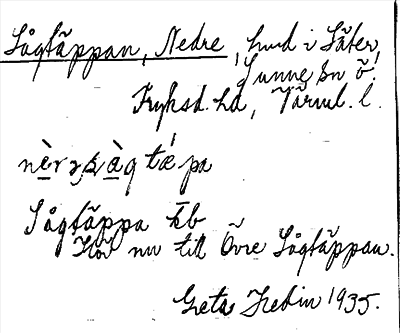 Sågtäppan, Nedre, hmd i Säter,
Sunne sn ö.
Fryksd. hd, Värml. l.
nὲrə sὰg tǽpa
Sågtäppa kb
Hör nu till Övre Sågtäppan.
Greta Hedin 1935.